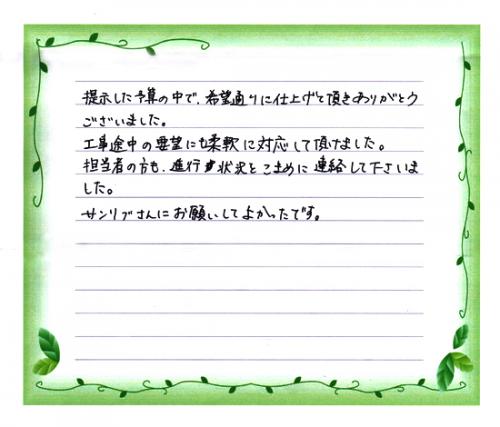 提示した予算の中で、希望通りに仕上げて頂きありがとう
ございました。
工事途中の要望にも柔軟に対応して頂けました。
担当者の方も、進行状況をこまめに連絡して下さいま
した。
サンリブさんにお願いしてよかったです。